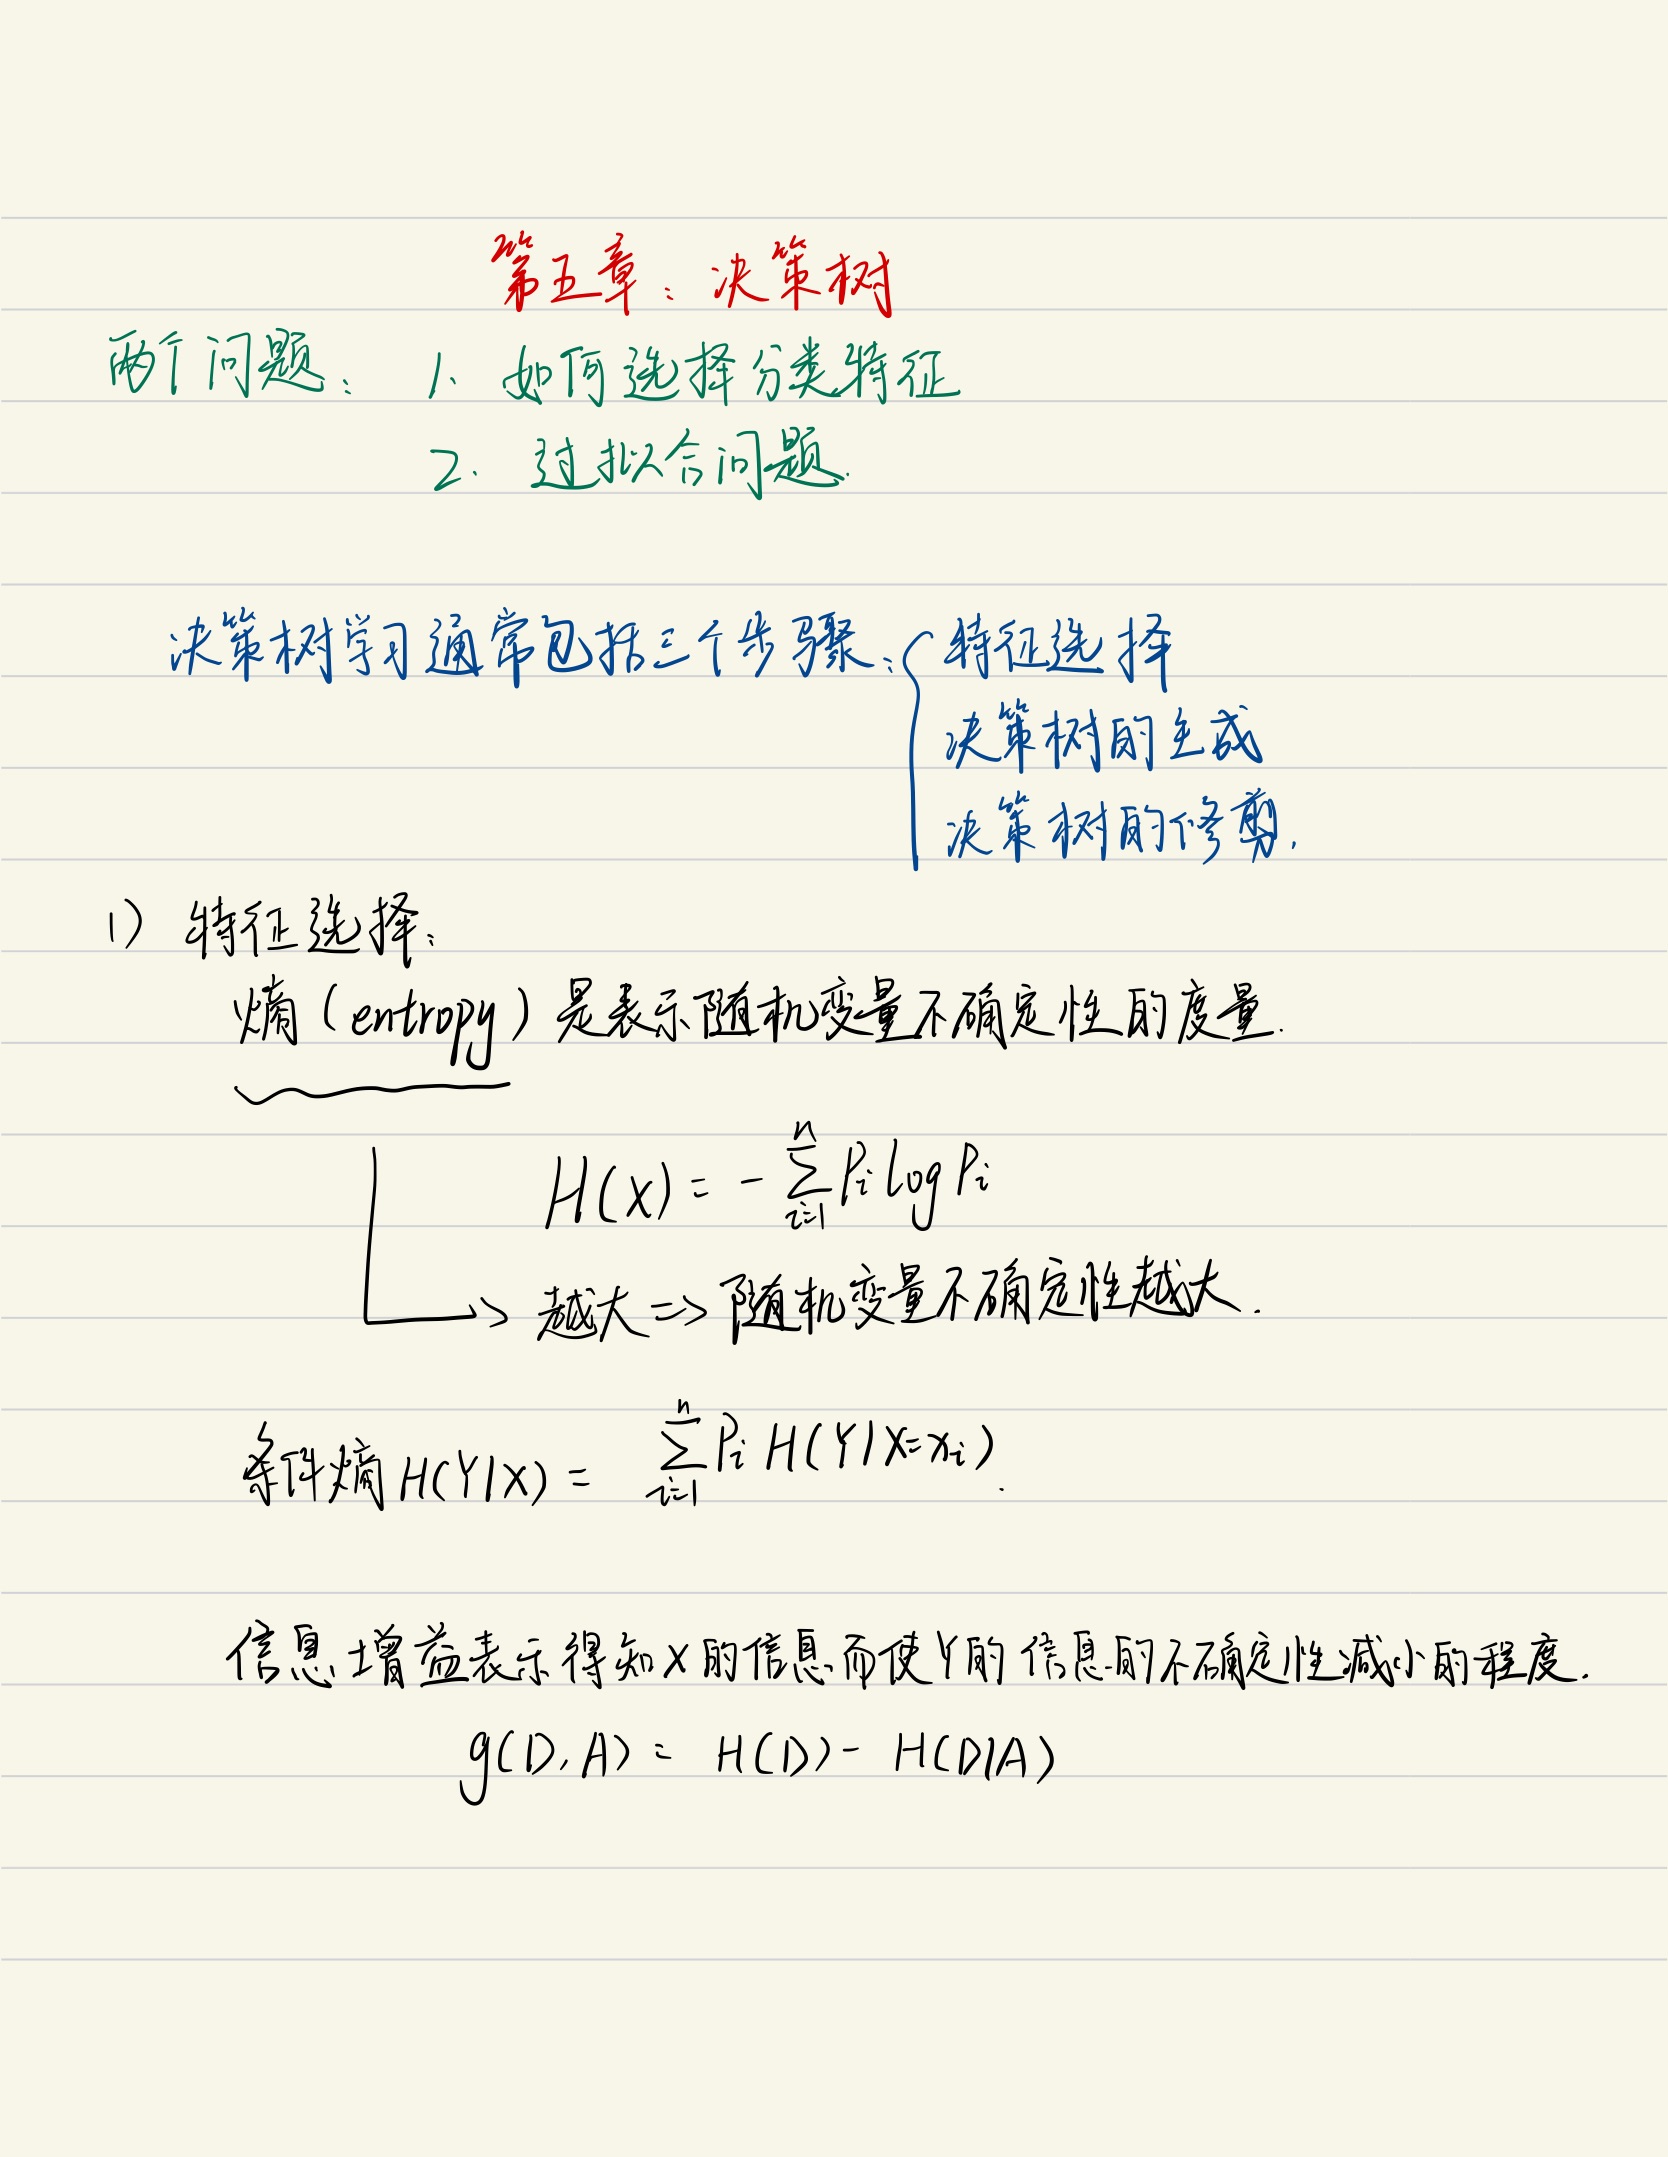 第五章：决策树
两个问题：1、如何选择分类特征
2. 过拟合问题.
决策树学习通常包括三个步骤：{ 特征选择
决策树的生成
决策树的修剪.
1) 特征选择：
熵(entropy)是表示随机变量不确定性的度量.
H(X) = - ∑_{i=1}^{n} P_i log P_i
越大 => 随机变量不确定性越大.
条件熵 H(Y|X) = ∑_{i=1}^{n} P_i H(Y|X=x_i).
信息增益表示得知X的信息而使Y的信息的不确定性减小的程度.
g(D,A) = H(D) - H(D|A)